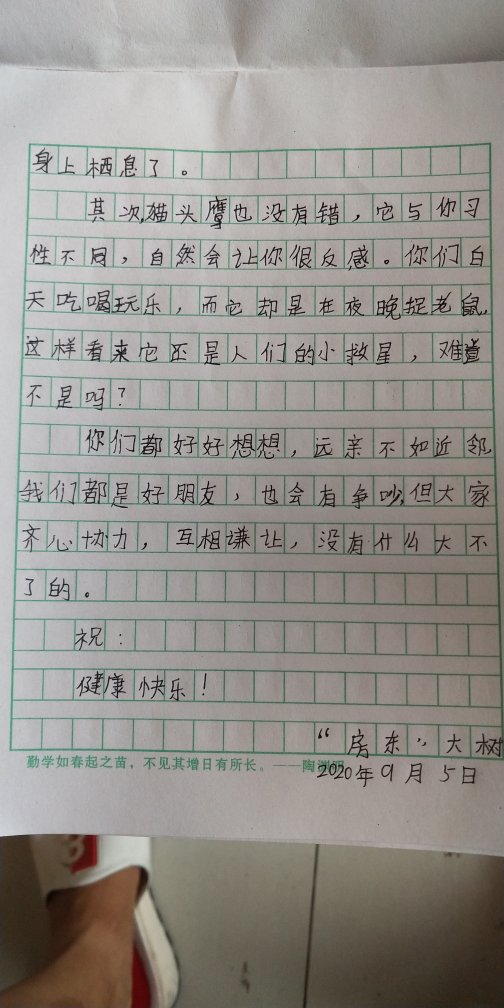 身上栖息了。
其次,猫头鹰也没有错，它与你习
性不同，自然会让你很反感。你们白
天吃喝玩乐，而它却是在夜晚捉老鼠,
这样看来它还是人们的小救星，难道
不是吗？
你们都好好想想，远亲不如近邻,
我们都是好朋友，也会有争吵,但大家
齐心协力，互相谦让，没有什么大不
了的。
祝：
健康快乐！
“房东”大树
勤学如春起之苗，不见其增日有所长。——陶渊明
2020年9月5日